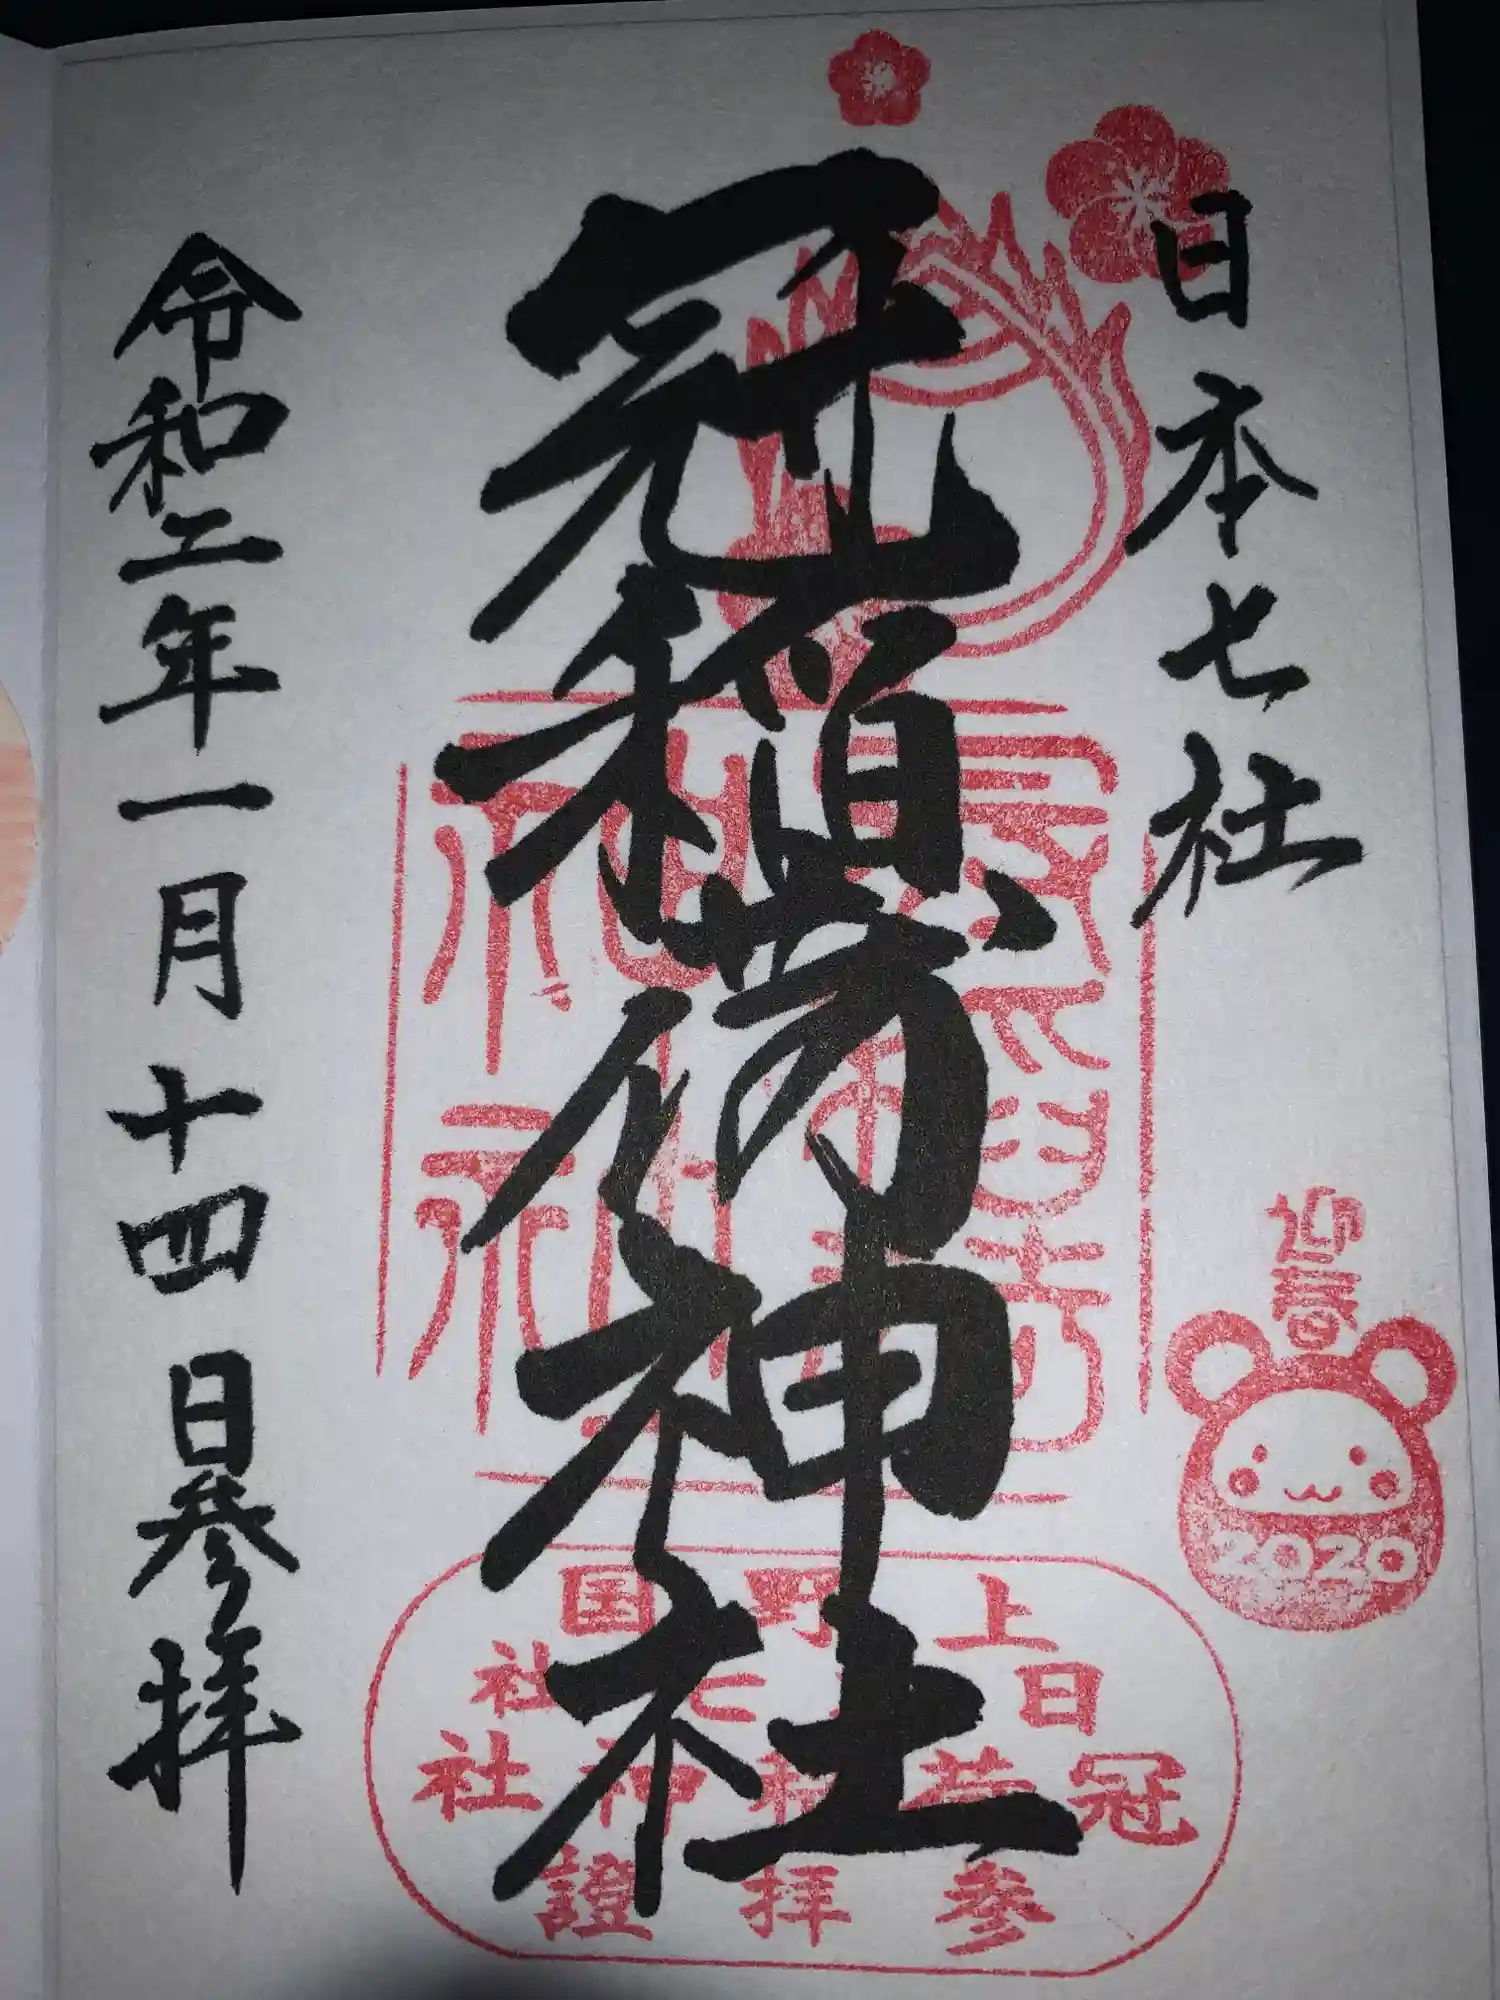 日本七社
冠稲荷神社
令和二年一月十四日参拝
迎春
2020
上野国
日 七社
冠稲荷神社
参拝證